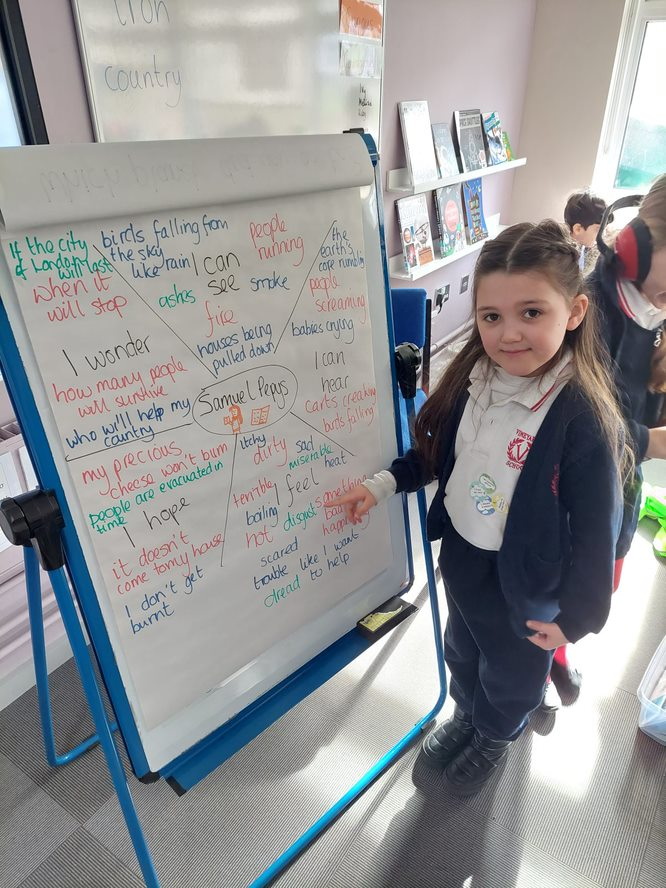 iron
country
If the city
of London
will last
birds falling from
the sky
like rain
I can
see
people
running
the
earth's
core rumbling
when it
will stop
ashes
smoke
people
screaming
fire
babies crying
houses being
pulled down
I wonder
how many people
will survive
who will help my
country
Samuel Pepys
I can
hear
carts creaking
birds falling
my precious
cheese won't burn
people are evacuated in
time
I hope
it doesn't
come to my house
I don't get
burnt
itchy
dirty
sad
miserable
heat
terrible
I feel
something
boiling
disgust
hot
scared
trouble like I want
to help
dread
VINEYARD
SCHOOL